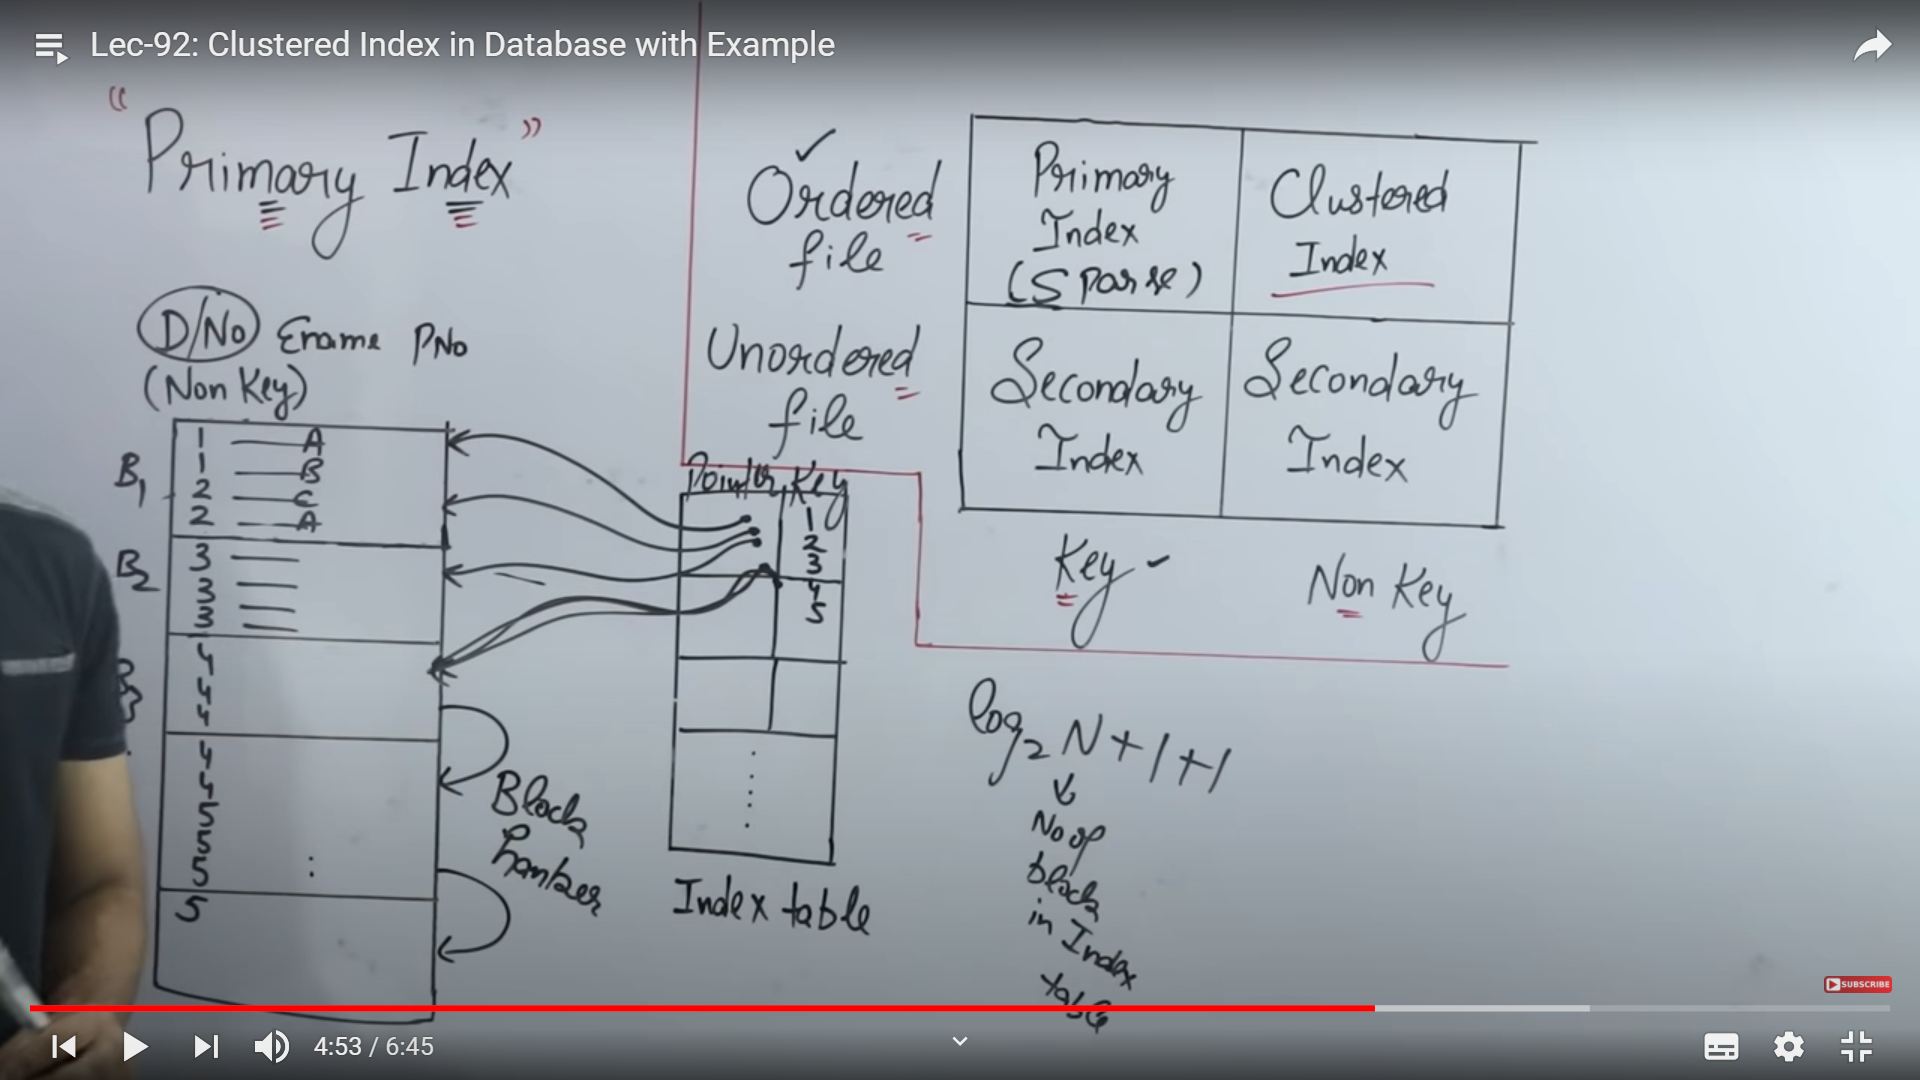 Lec-92: Clustered Index in Database with Example
"Primary Index"
D/No Ename PNo
(Non Key)
B1
1 A
1 B
2 C
2 A
B2
3
3
3
B3
4
4
4
4
4
5
5
5
5
Block
hanker
Pointer Key
1
2
3
4
5
Index table
Ordered
file
Unordered
file
Primary
Index
(Sparse)
Clustered
Index
Secondary
Index
Secondary
Index
Key
Non Key
log2 N+1+1
No of
block
in Index
table
SUBSCRIBE
4:53 / 6:45